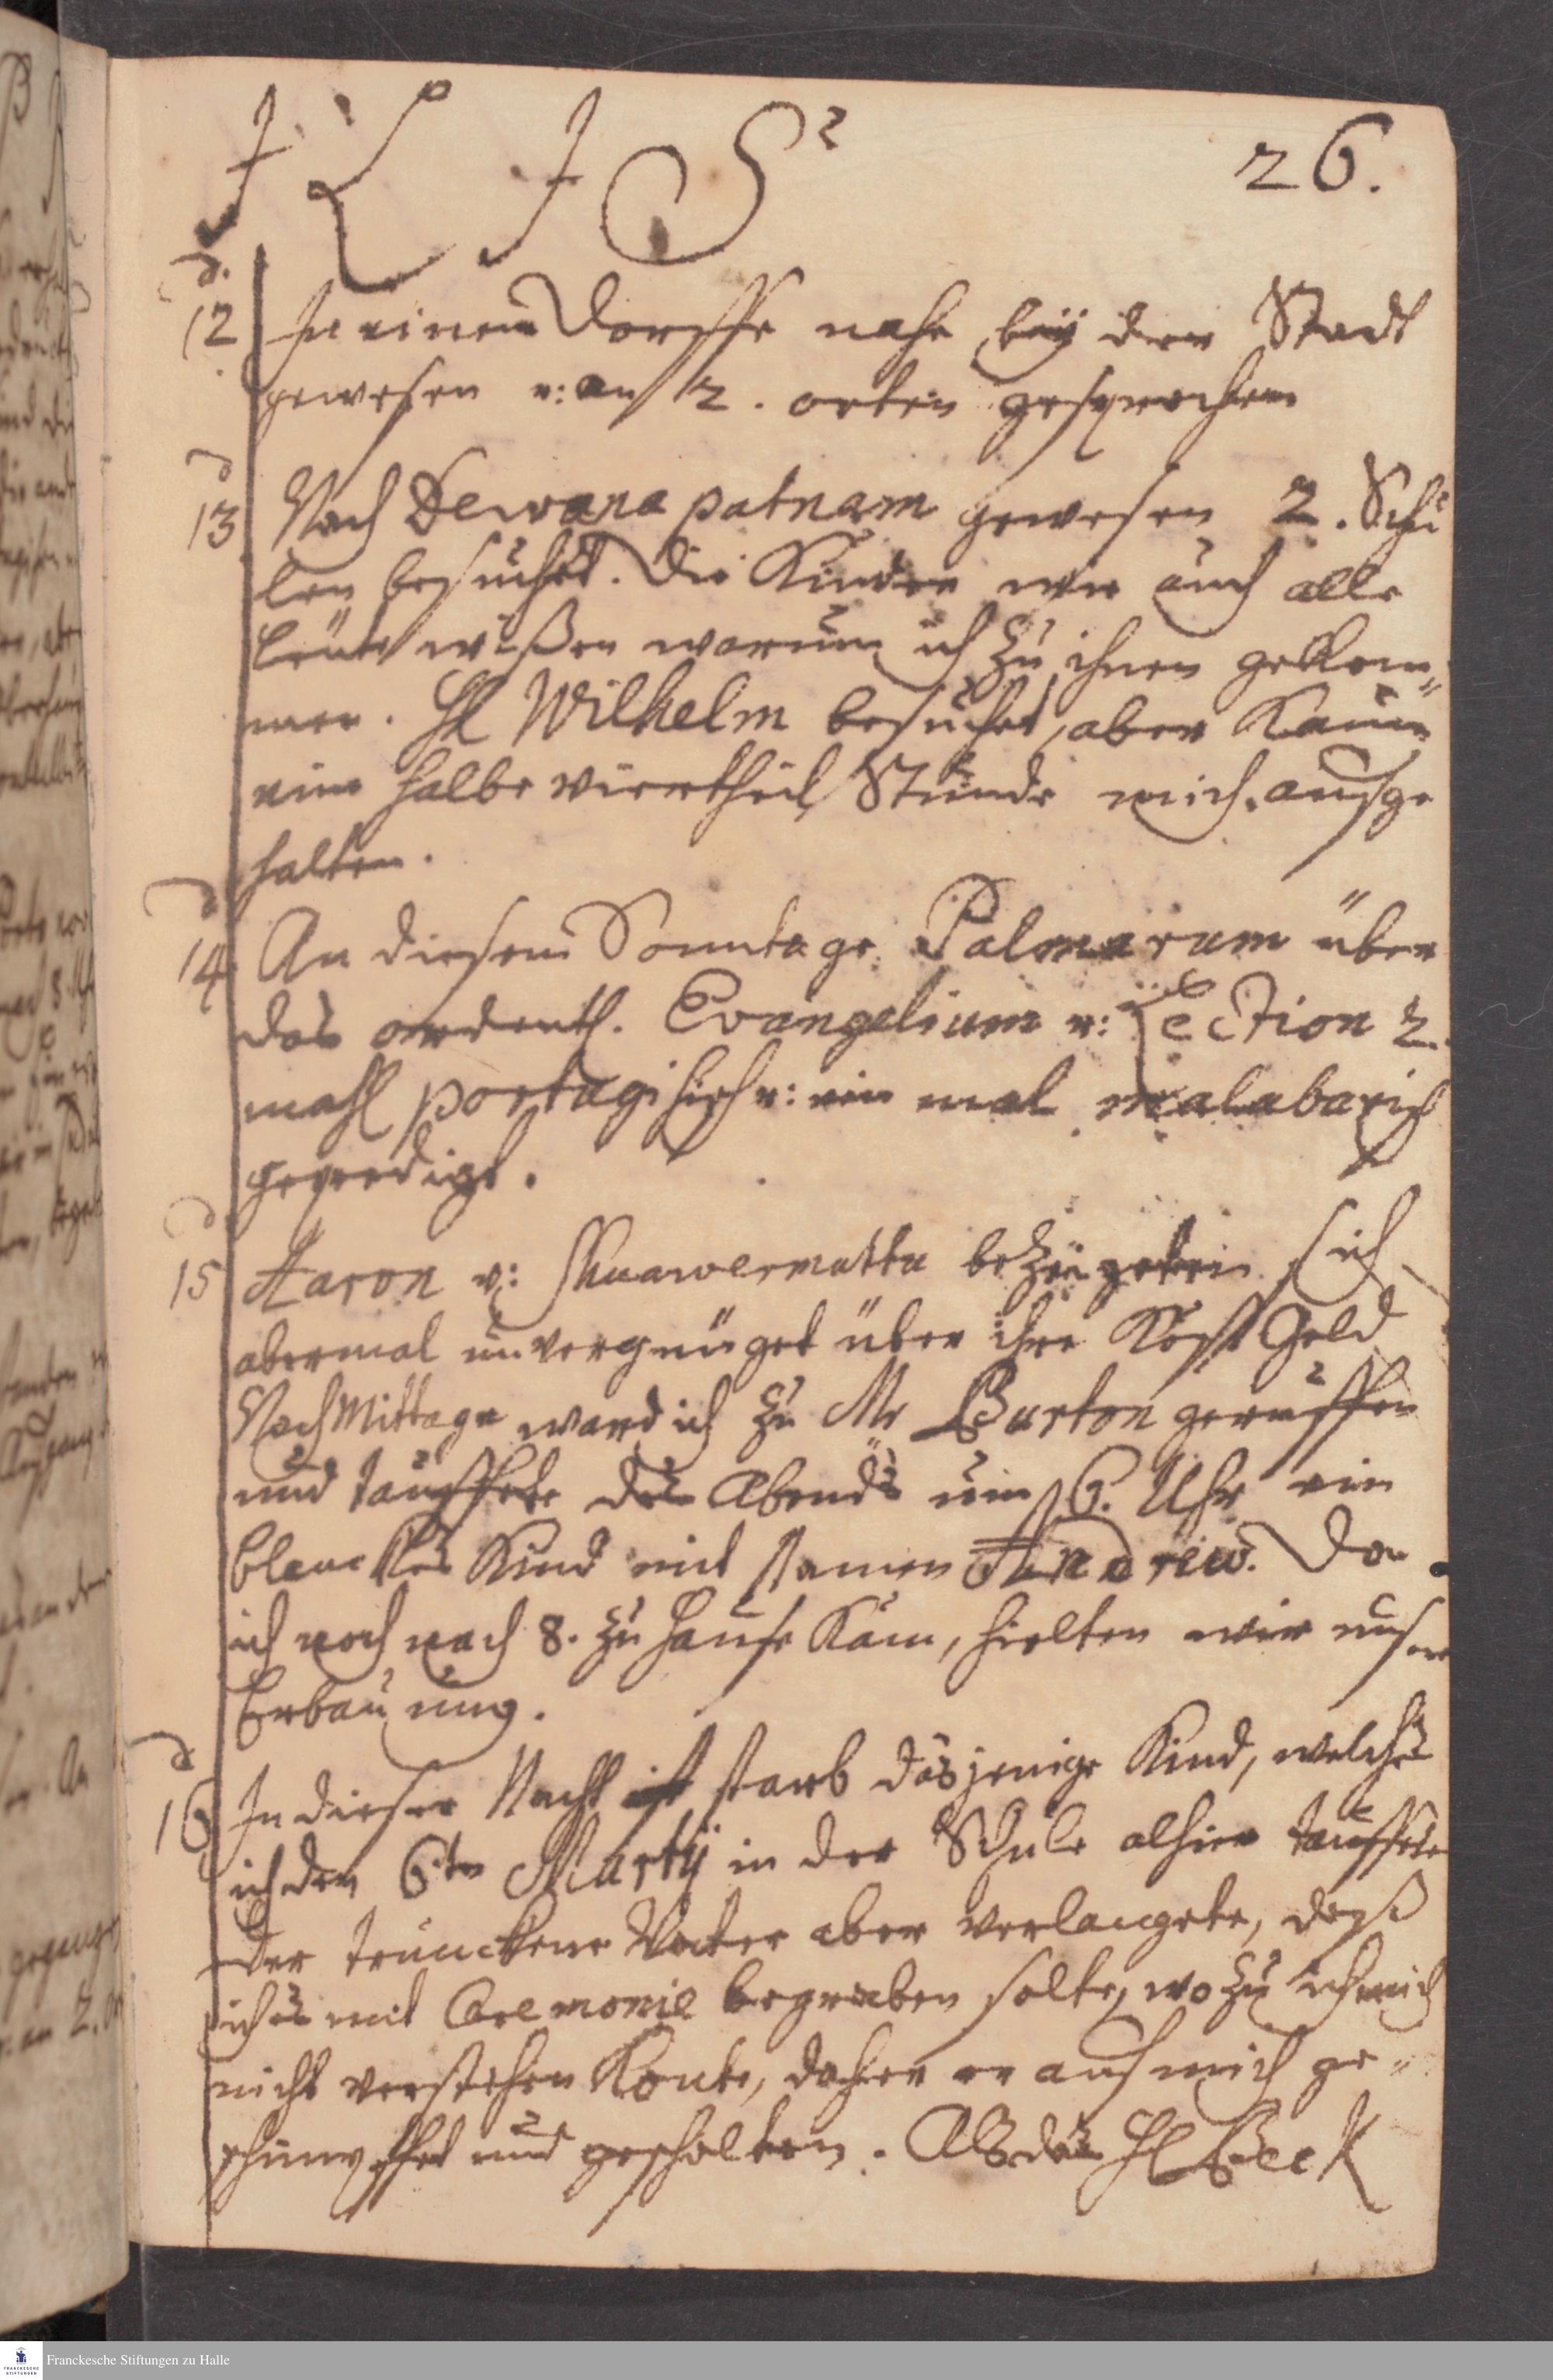 I L I S
26.
d.
12 In einem Dorffe nahe beÿ der Stadt
gewesen u: an 2. orten gesprochen
d
13 Nach Dewanapatnam gewesen 2. Schu
len besuchet. Die Kinder wie auch alle
leute wißen warum ich zu ihnen gekom„
men. H Wilhelm besuchet, aber kaum
eine halbe viertheil Stunde mich aufge
halten.
d
14 An diesem Sonntage Palmarum über
das ordentl. Evangelium u: Lection 2.
mahl portugisisch u: ein mal malabarisch
geprediget.
d
15 Aaron u: bezeugeten sich
abermal unvergnüget über ihre Kost Geld
Nach Mittage ward ich zu Mr Burton geruffen
und tauffete des Abends um 6. Uhr ein
blanckes Kind mit Namen Andrew. Da
ich noch nach 8. zu Hause kam, hielten wir unsere
Erbauung.
d
16 In dieser Nacht ist starb dasjenige Kind, welches
ich den 6ten Martÿ in der Schule alhier tauffete
Der trunckene Vater aber verlangete, daß
ich es mit Ceremonie begraben solte, wozu ich mich
nicht verstehen konte, daher er auf mich ge-
schimpffet und gescholten. Als das H Beck
Franckesche Stiftungen zu Halle